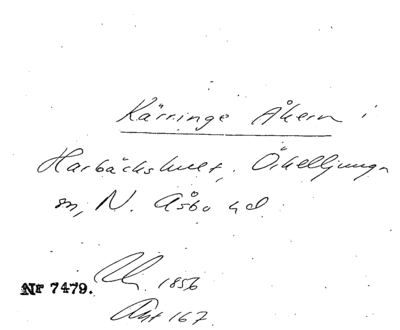 Kärringe Åkern i
Harbäckshult, Örkelljunga
sn, N. Åsbo hd.
1856
Nr 7479.
Akt 167